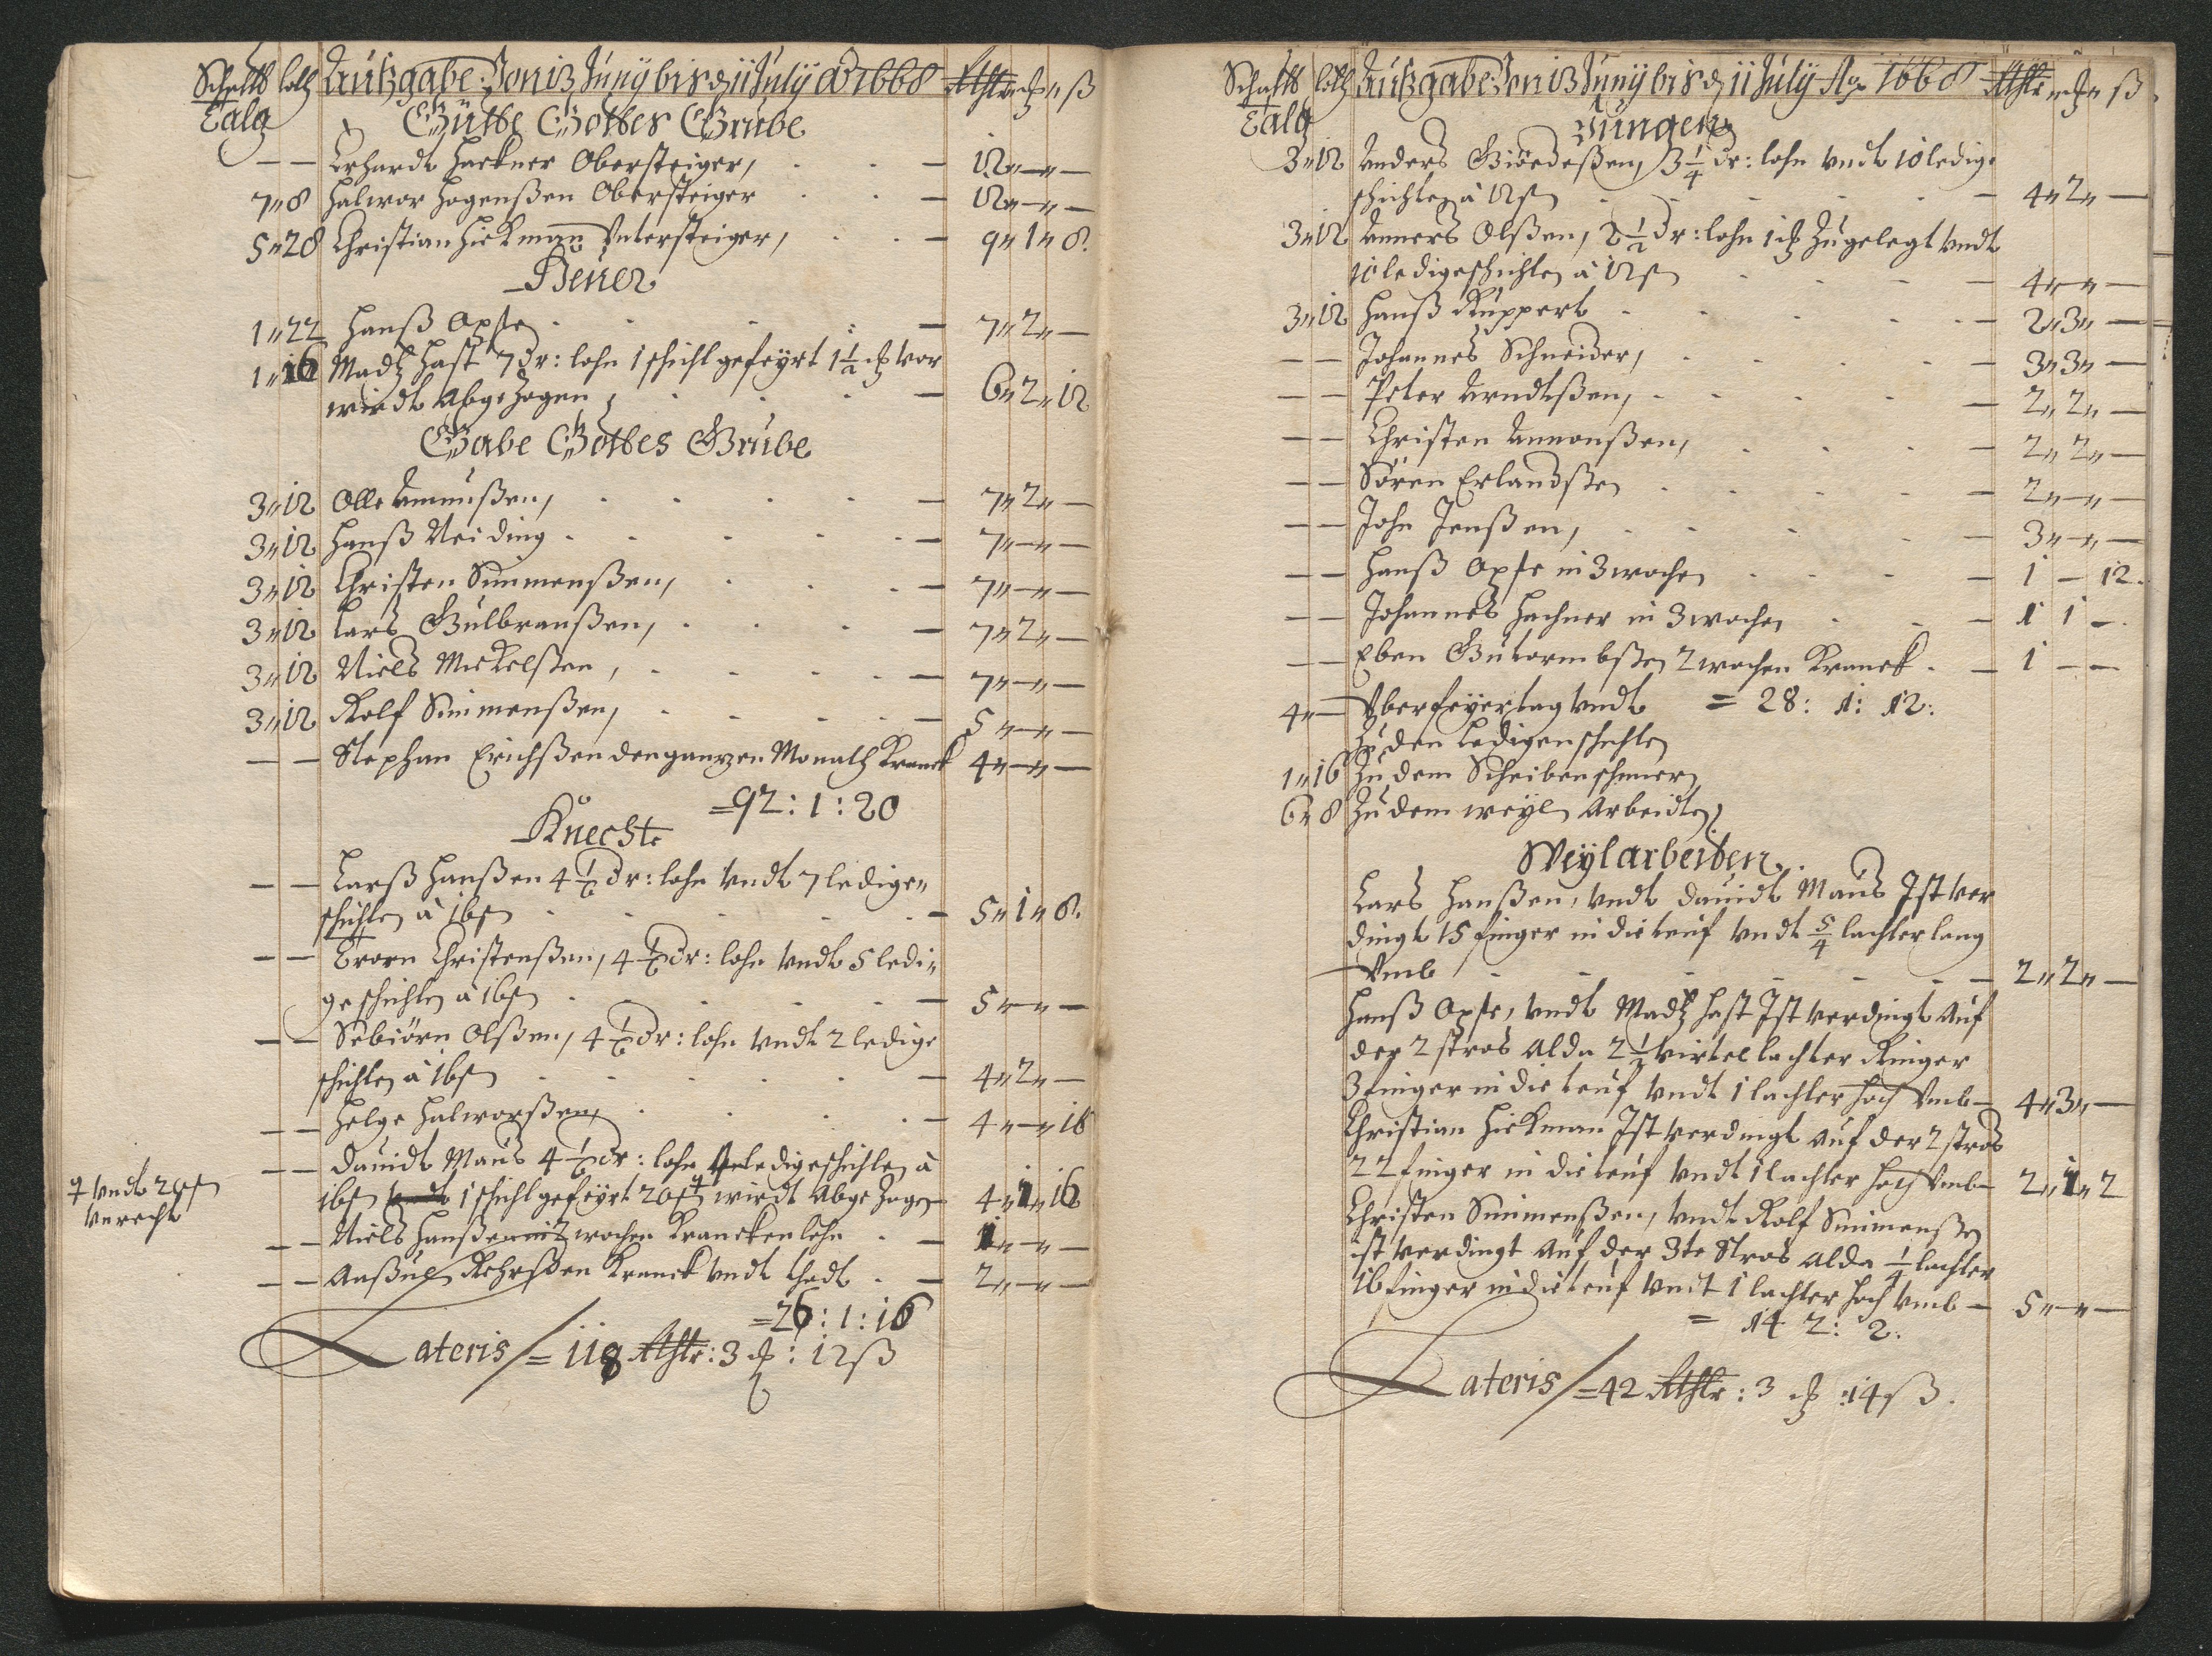 Schaltt Talg loth Außgabe: Von 13 Junÿ bis d 11 Julÿ Ao 1668 Rthlr ß
Gütte Gottes Grube
— — Erhardt Hackner Obersteiger, — 12 „ — „ —
7 „ 8 Halwor Hogenßen Obersteiger — 12 „ — „ —
5 „ 28 Christian Hickman Untersteiger, — 9 „ 1 „ 8.
Heüer
1 „ 22 Hanß Opse — 7 „ 2 „ —
1 „ 16 Madtz Hast 7 dr: lohn 1 schicht gefeÿrt 1 1/2 vor
wirdt Abgezogen, — 6 „ 2 „ 12
Gabe Gottes Grube
3 „ 12 Olle Ammunßen, — 7 „ 2 „ —
3 „ 12 Hanß Neiding — 7 „ — „ —
3 „ 12 Christen Simmenßen, — 7 „ — „ —
3 „ 12 Lars Gulbranßen, — 7 „ 2 „ —
3 „ 12 Niels Mickelßen, — 7 „ — „ —
3 „ 12 Rolf Simmenßen, — 5 „ — „ —
— — Stephan Erichßen den ganzen Monath Kranck 4 „ — „ —
= 92 : 1 : 20
Knechte
— — Larß Hanßen 4 1/2 dr: lohn undt 7 ledige
schichten à 16 ß — 5 „ 1 „ 8.
— — Trorn Christenßen, 4 1/2 dr: lohn undt 5 ledi„
geschichten à 16 ß — 5 „ — „ —
— — Sebiörn Olßen, 4 1/2 dr: lohn undt 2 ledige
schichten à 16 ß — 4 „ 2 „ —
— — Helge Halworßen, — 4 „ — „ 16
— — Dauidt Maus 4 1/2 dr: lohn ledigeschichten à
16 ß 1 schicht gefeÿrt 20 ß wirdt Abgezogen 4 „ 1 „ 16
undt 20 ß
unrecht
— — Niels Hanßen wochen Krancken lohn — 1 „ — „ —
— — Aaßul Rohrßen Kranck undt thodt — 2 „ — „ —
= 26 : 1 : 16
Lateris / = 118 Rthlr : 3 : 12 ß
Schaltt Talg loth Außgabe: Von 13 Junÿ bis d 11 Julÿ Ao 1668 Rthlr ß
Jungen
3 „ 12 Anders Giöedeßen, 3 1/4 dr: lohn undt 10 ledige
schichten à 12 ß — 4 „ 2 „ —
3 „ 12 Anners Olßen, 2 1/2 dr: lohn 1 zugelegt undt
10 ledigeschichten à 12 ß — 4 „ — „ —
3 „ 12 Hanß Ruppert — 2 „ 3 „ —
— — Johannes Schneider, — 3 „ 3 „ —
— — Peter Arndtßen, — 2 „ 2 „ —
— — Christen Ammonßen, — 2 „ 2 „ —
— — Sören Erlandßen — 2 „ — „ —
— — John Jenßen, — 3 „ — „ —
— — Hanß Opse in 3 wochen — 1 — 12.
— — Johannes Hachner in 3 wochen — 1 1 —.
— — Eben Gutormbßen 2 wochen Kranck — 1 — —
4 „ — Uberfeÿertag undt = 28 : 1 : 12 :
Zu den Ledigenschichten
1 „ 16 Zu dem Scheibenschmer
6 „ 8 Zu dem weÿl Arbeidten
Weÿlarbeiten.
Lars Hanßen, undt Dauidt Maus Ist ver
dingt 15 finger in die teuf undt 5/4 lachter lang
Umb — 2 „ 2 „ —
Hanß Opse, undt Madtz Hast Ist verdingt Auf
der 2 stros Alda 2 1/2 virtel lachter Ringer
3 finger in die teuf undt 1 lachter hoch Umb — 4 „ 3 „ —
Christian Hickman Ist verdingt Auf der 2 stros
22 finger in die teuf undt 1 lachter hoch Umb — 2 „ 1 „ 2
Christen Simmenßen, undt Rolf Simmenßen
ist verdingt Auf der 3te Stros Alda 1/4 lachter
16 finger in die teuf undt 1 lachter hoch Umb — 5 „ — „ —
= 14 2 : 2.
Lateris / = 42 Rthlr : 3 : 14 ß.